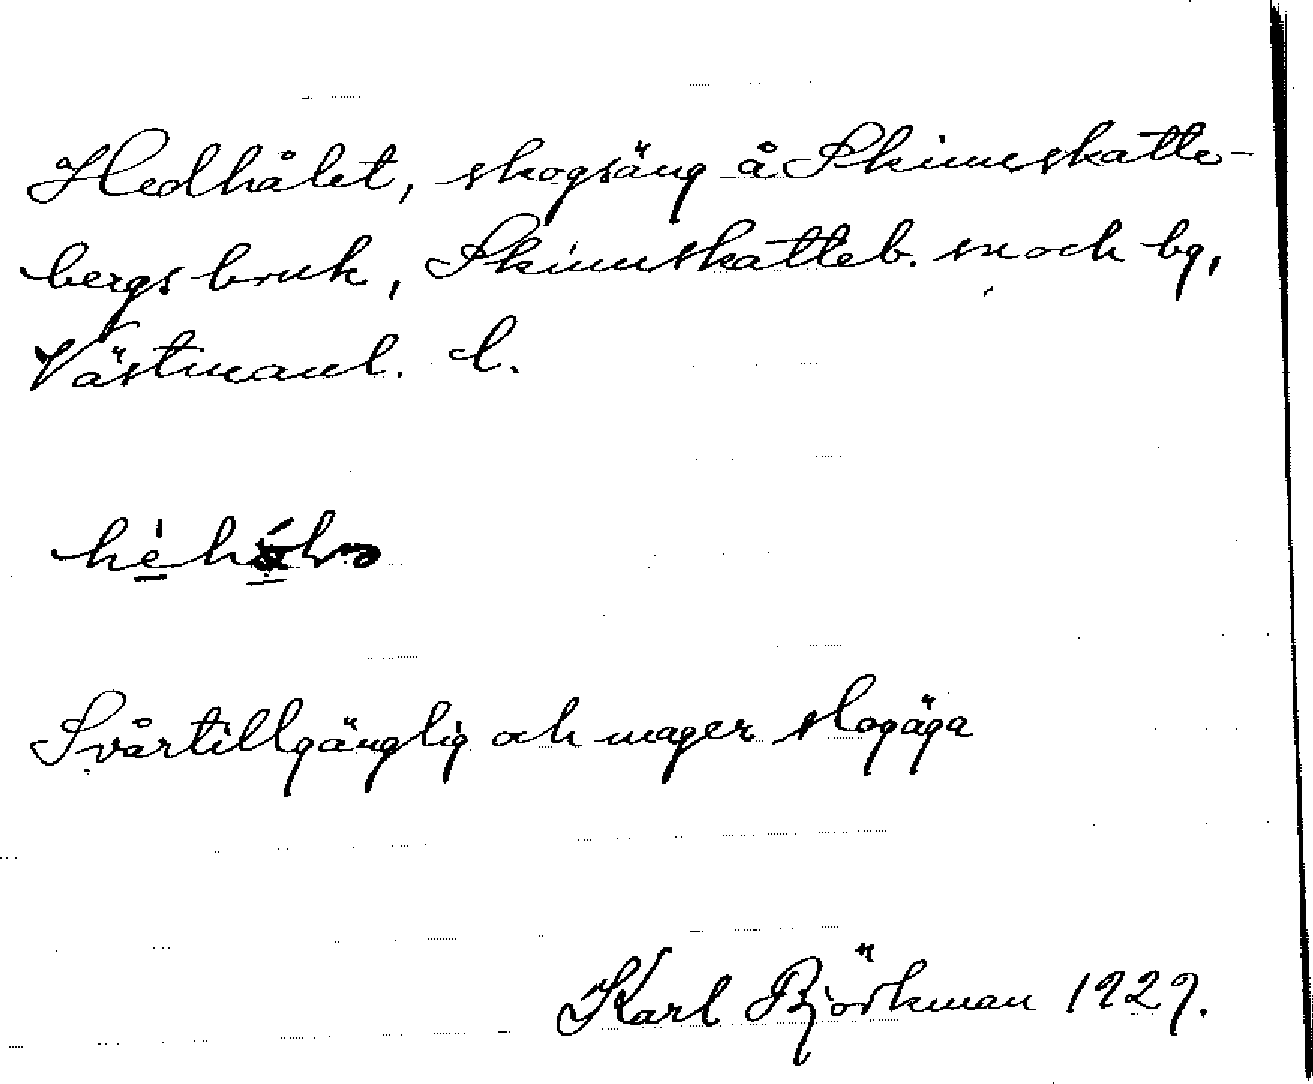 Hedhålet, skogsäng å Skinnskatte-
bergs bruk, Skinnskatteb. sn och bg,
Västmanl. l.
Svårtillgänglig och mager skogäga
Karl Björkman 1929.